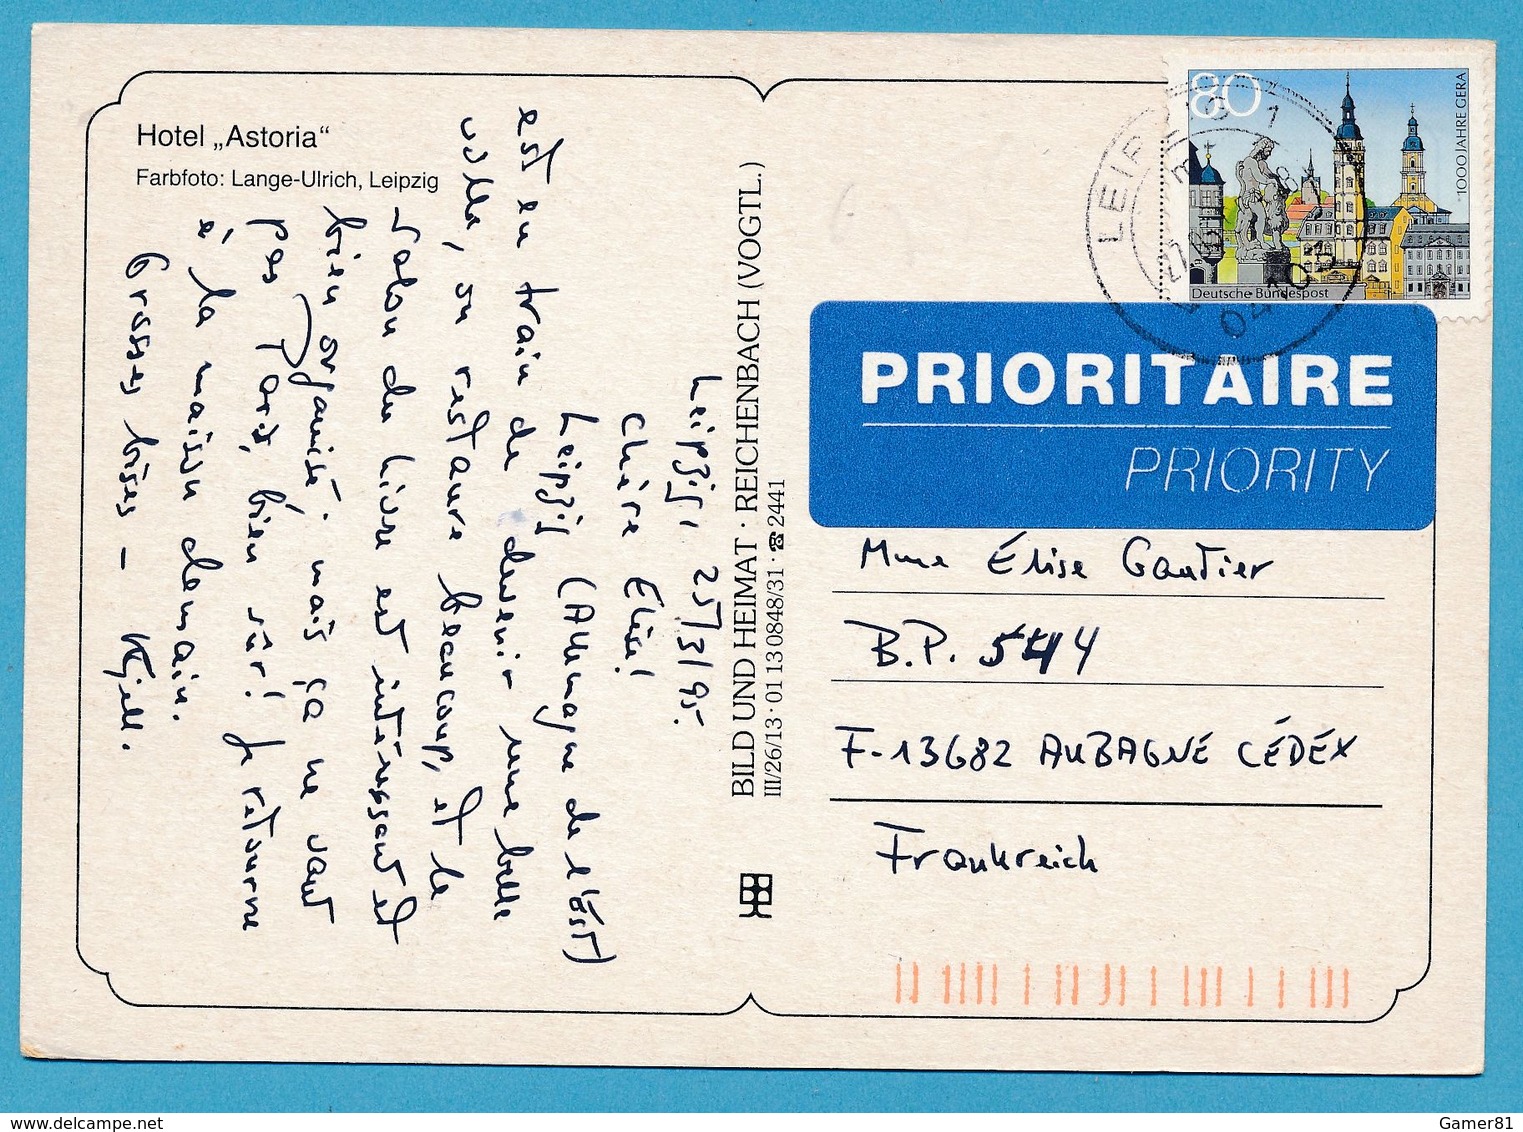 Hotel „Astoria“
Farbfoto: Lange-Ulrich, Leipzig
Leipzig, 25/3/95.
Chère Élise!
Leipzig (Allemagne de l'Est)
est en train de devenir une belle
ville, on restaure beaucoup, et le
salon du livre est intéressant et
bien organisé. mais ça ne vaut
pas Paris, bien sûr! Je retourne
à la maison demain.
Grosses bises – Kjell.
BILD UND HEIMAT · REICHENBACH (VOGTL.)
III/26/13 · 01 13 0848/31 · ☎ 2441
80
1000 JAHRE GERA
Deutsche Bundespost
LEIPZIG 1
04103
PRIORITAIRE
PRIORITY
Mme Élise Gautier
B.P. 544
F-13682 AUBAGNE CÉDÉX
Frankreich
Gamer81